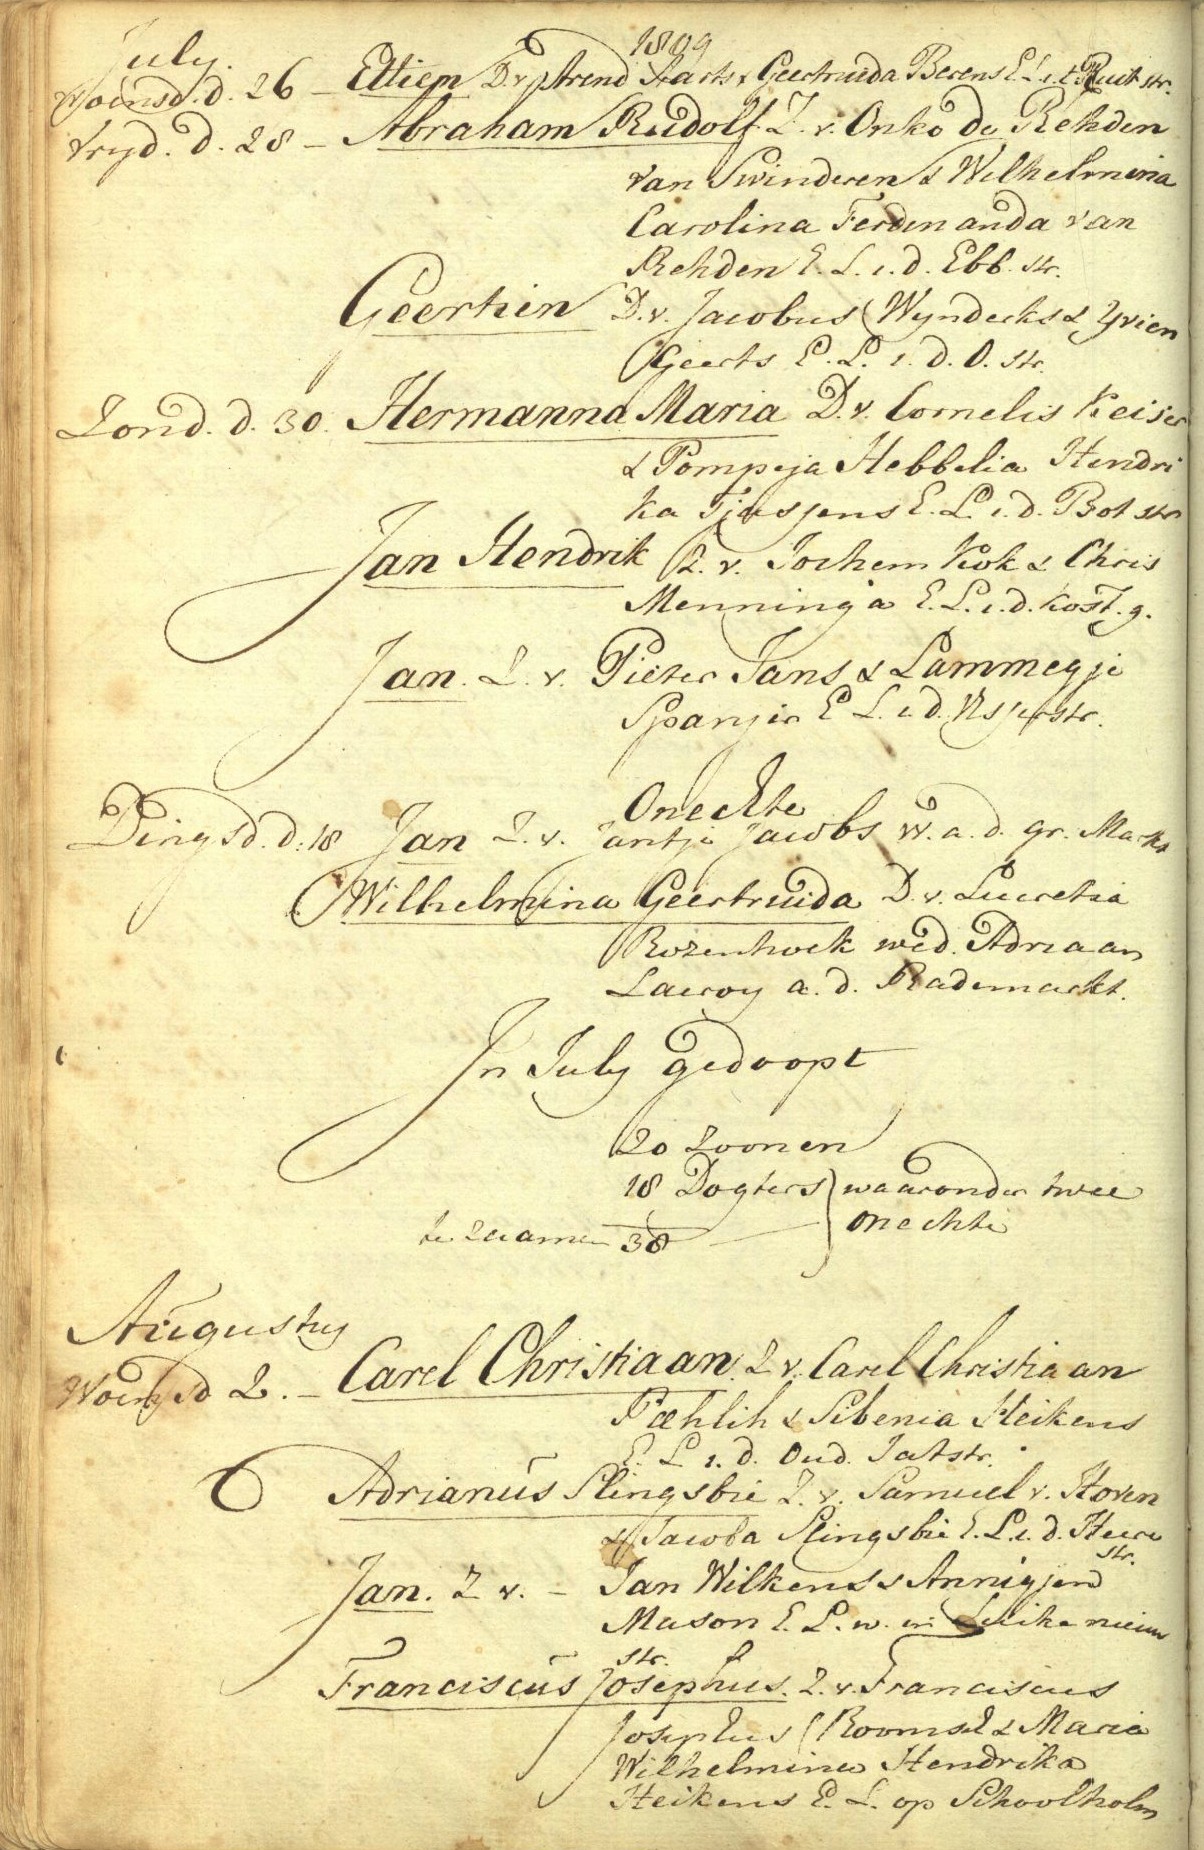 1809
July.
Woensd. d. 26 - Ettien D. v. Arend Harts & Geertruida Berens E. L. i. d. Ruit str.
Vryd. d. 28 - Abraham Rudolf Z. v. Onko de Rehden
van Swinderen & Wilhelmina
Carolina Ferdinanda van
Rehden E. L. i. d. Ebb. str.
Geertien D. v. Jacobus Wynderks & Yvien
Geerts E. L. i. d. O. str.
Zond. d. 30. Hermanna Maria D. v. Cornelis Keiser
& Pompeja Hebbelia Hendri
ka Tjassens E. L. i. d. Bot str
Jan Hendrik Z. v. Jochem Kok & Chris
Menninga E. L. i. d. Kost. g.
Jan. Z. v. Pieter Jans & Lammegje
Spanjer E L. i d. Visserstr.
Onechte
Dingsd. d. 18 Jan Z. v. Jantje Jacobs W. a. d. gr. Markt
Wilhelmina Geertruida D. v. Lucretia
Rozenhoek wed. Adriaan
Lacroy a. d. Rademarkt.
In July gedoopt
20 Zoonen
18 Dogters waaronder twee
te zaamen 38 onechte
Augustus
Woensd 2. - Carel Christiaan. Z v. Carel Christiaan
Pæhlih & Sibenia Heikens
E. L i. d. Oud. Jatstr.
Adrianus Slingsbie Z. v. Samuel v. Hoven
& Jacoba Slingsbie E. L. i. d. Heere
str.
Jan. Z v. - Jan Wilkens & Annigjen
Mason E. L. w. in Luike nieuw
str.
Franciscus Josephus. Z. v. Franciscus
Josephus Roomsel & Maria
Wilhelmina Hendrika
Heikens E. L. op Schoolholm